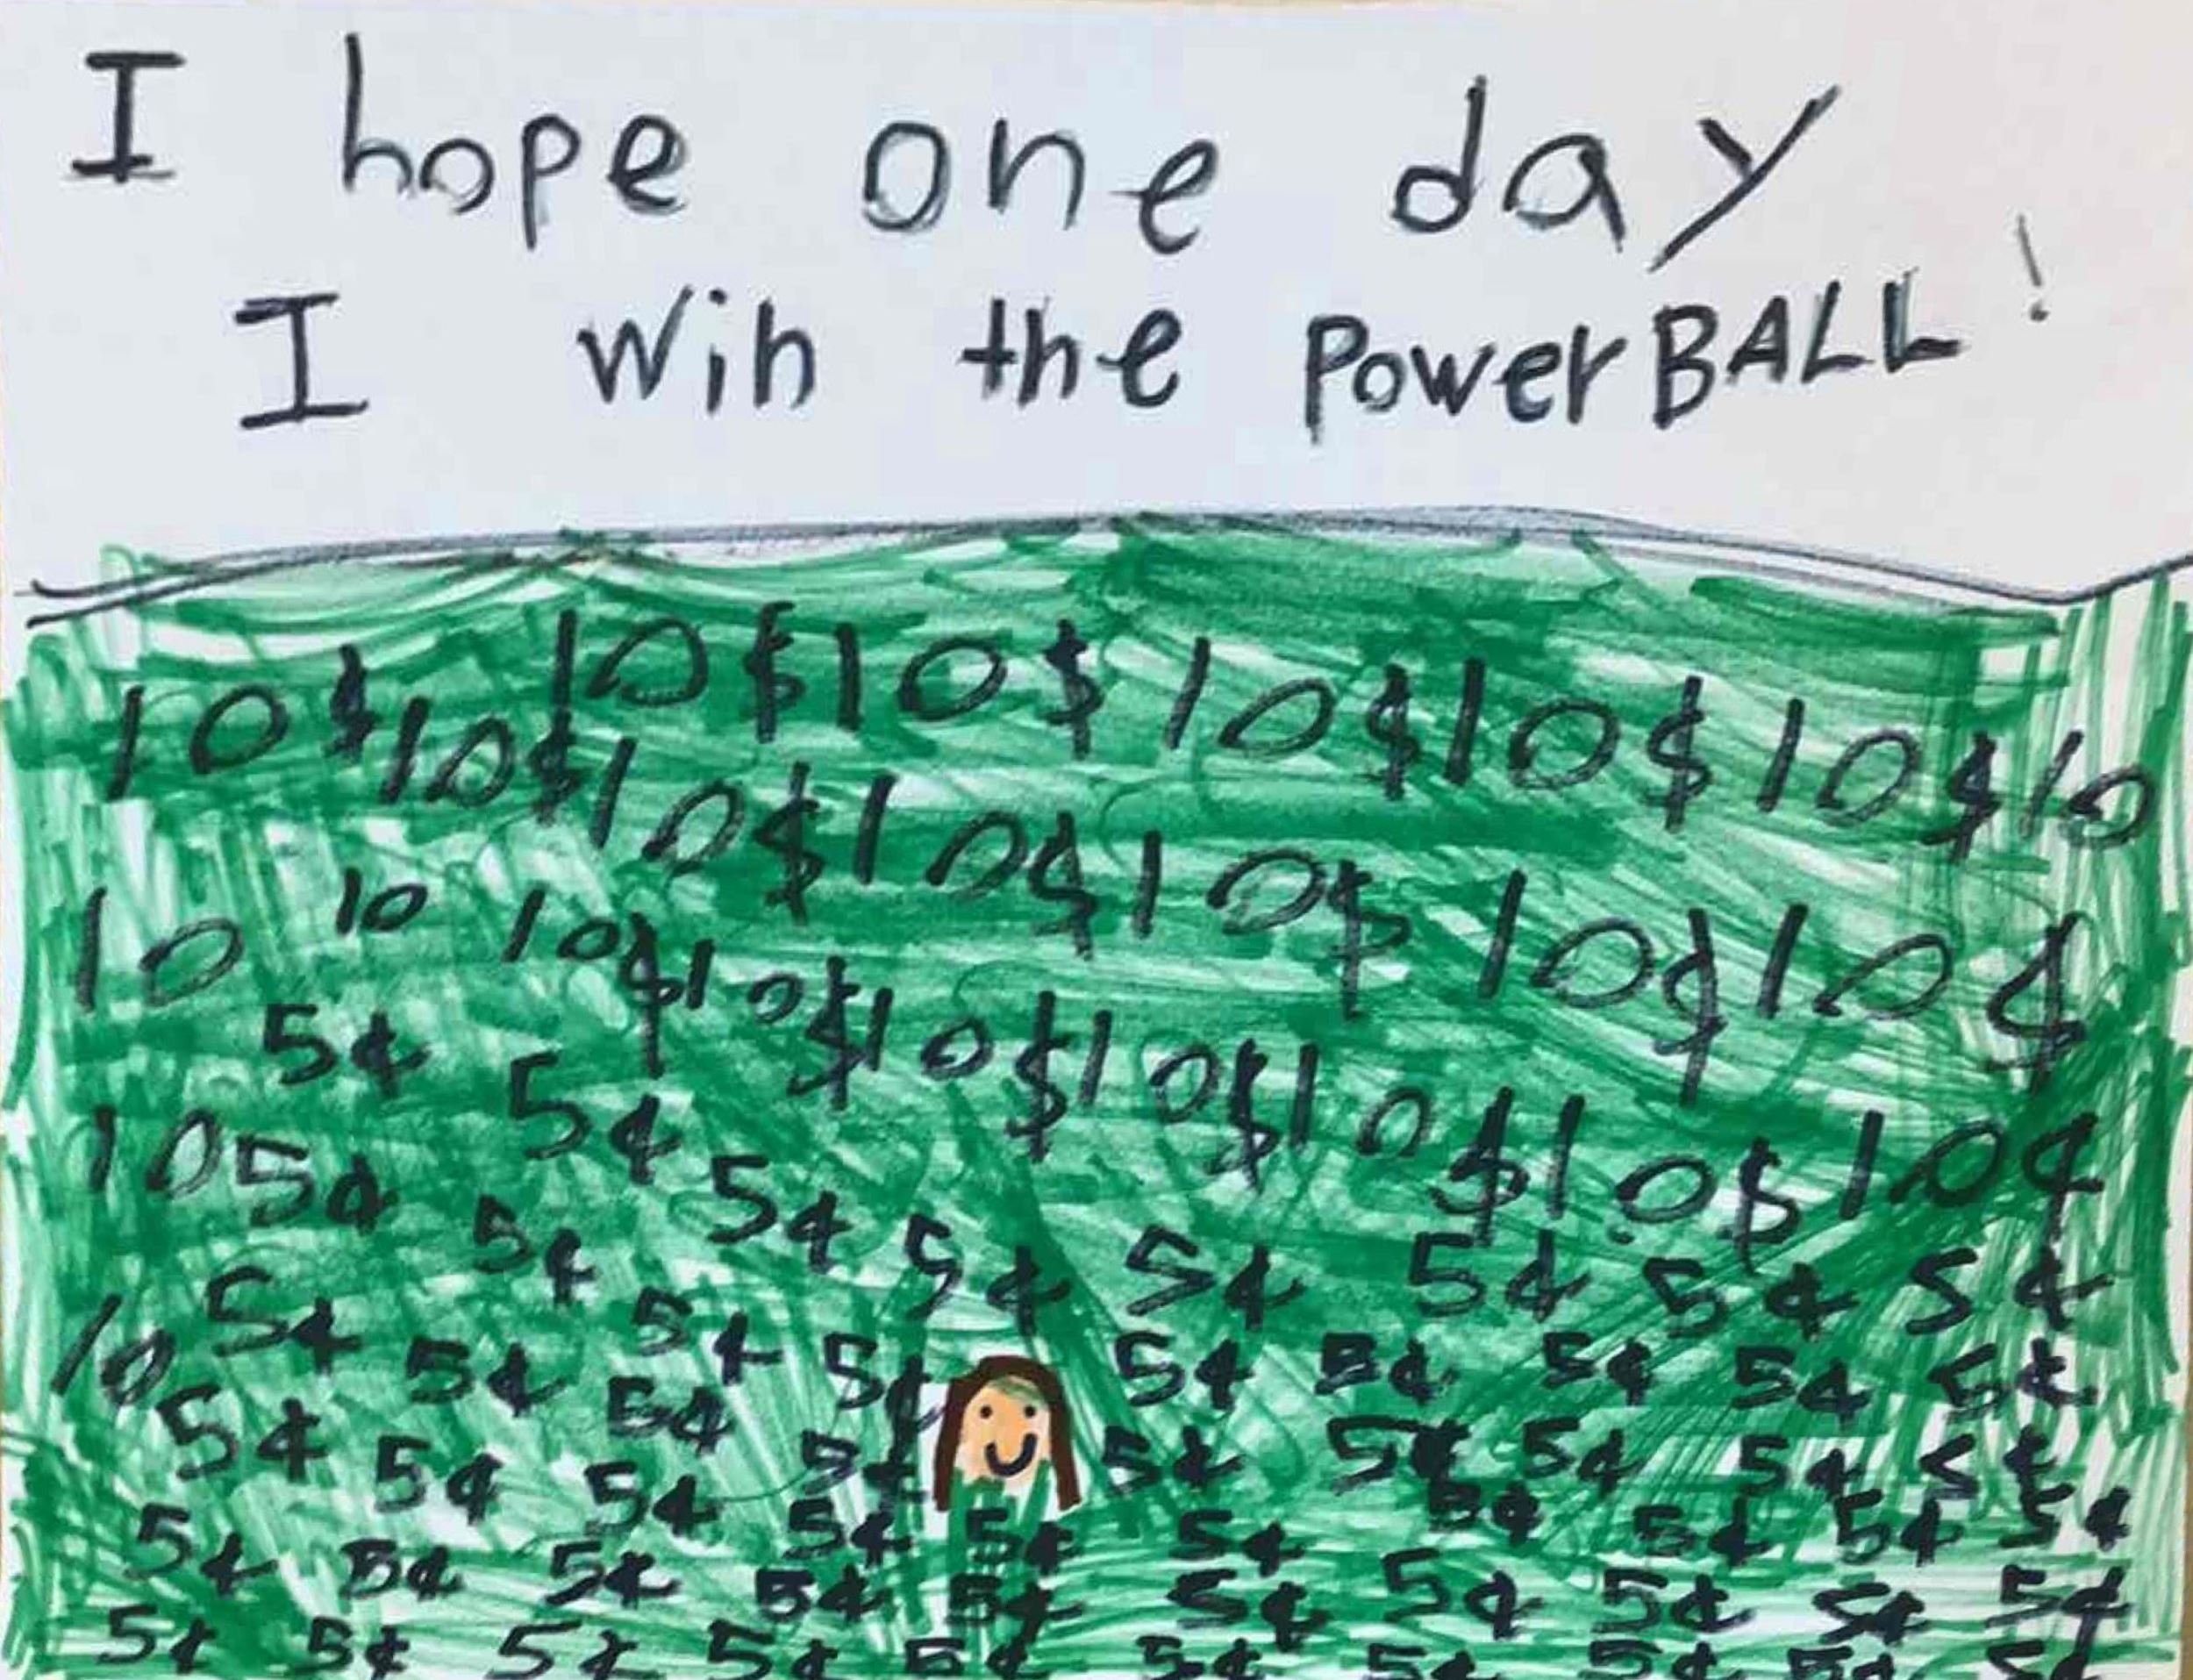 I hope one day
I win the PowerBALL!
10$10$10$10$10$10$10
10$10$10$10$10$10$
10 10 10$10$10$10$10$10$10¢
5¢ 5¢ 5¢ 5¢ 5¢ 5¢ 5¢ 5¢
10 5¢ 5¢
10 5¢ 5¢ 5¢ 5¢ 5¢ 5¢ 5¢ 5¢ 5¢
5¢ 5¢ 5¢ 5¢ 5¢ 5¢ 5¢ 5¢ 5¢
5¢ 5¢ 5¢ 5¢ 5¢ 5¢ 5¢ 5¢ 5¢ 5¢
5¢ 5¢ 5¢ 5¢ 5¢ 5¢ 5¢ 5¢ 5¢ 5¢
5¢ 5¢ 5¢ 5¢ 5¢ 5¢ 5¢ 5¢ 5¢ 5¢